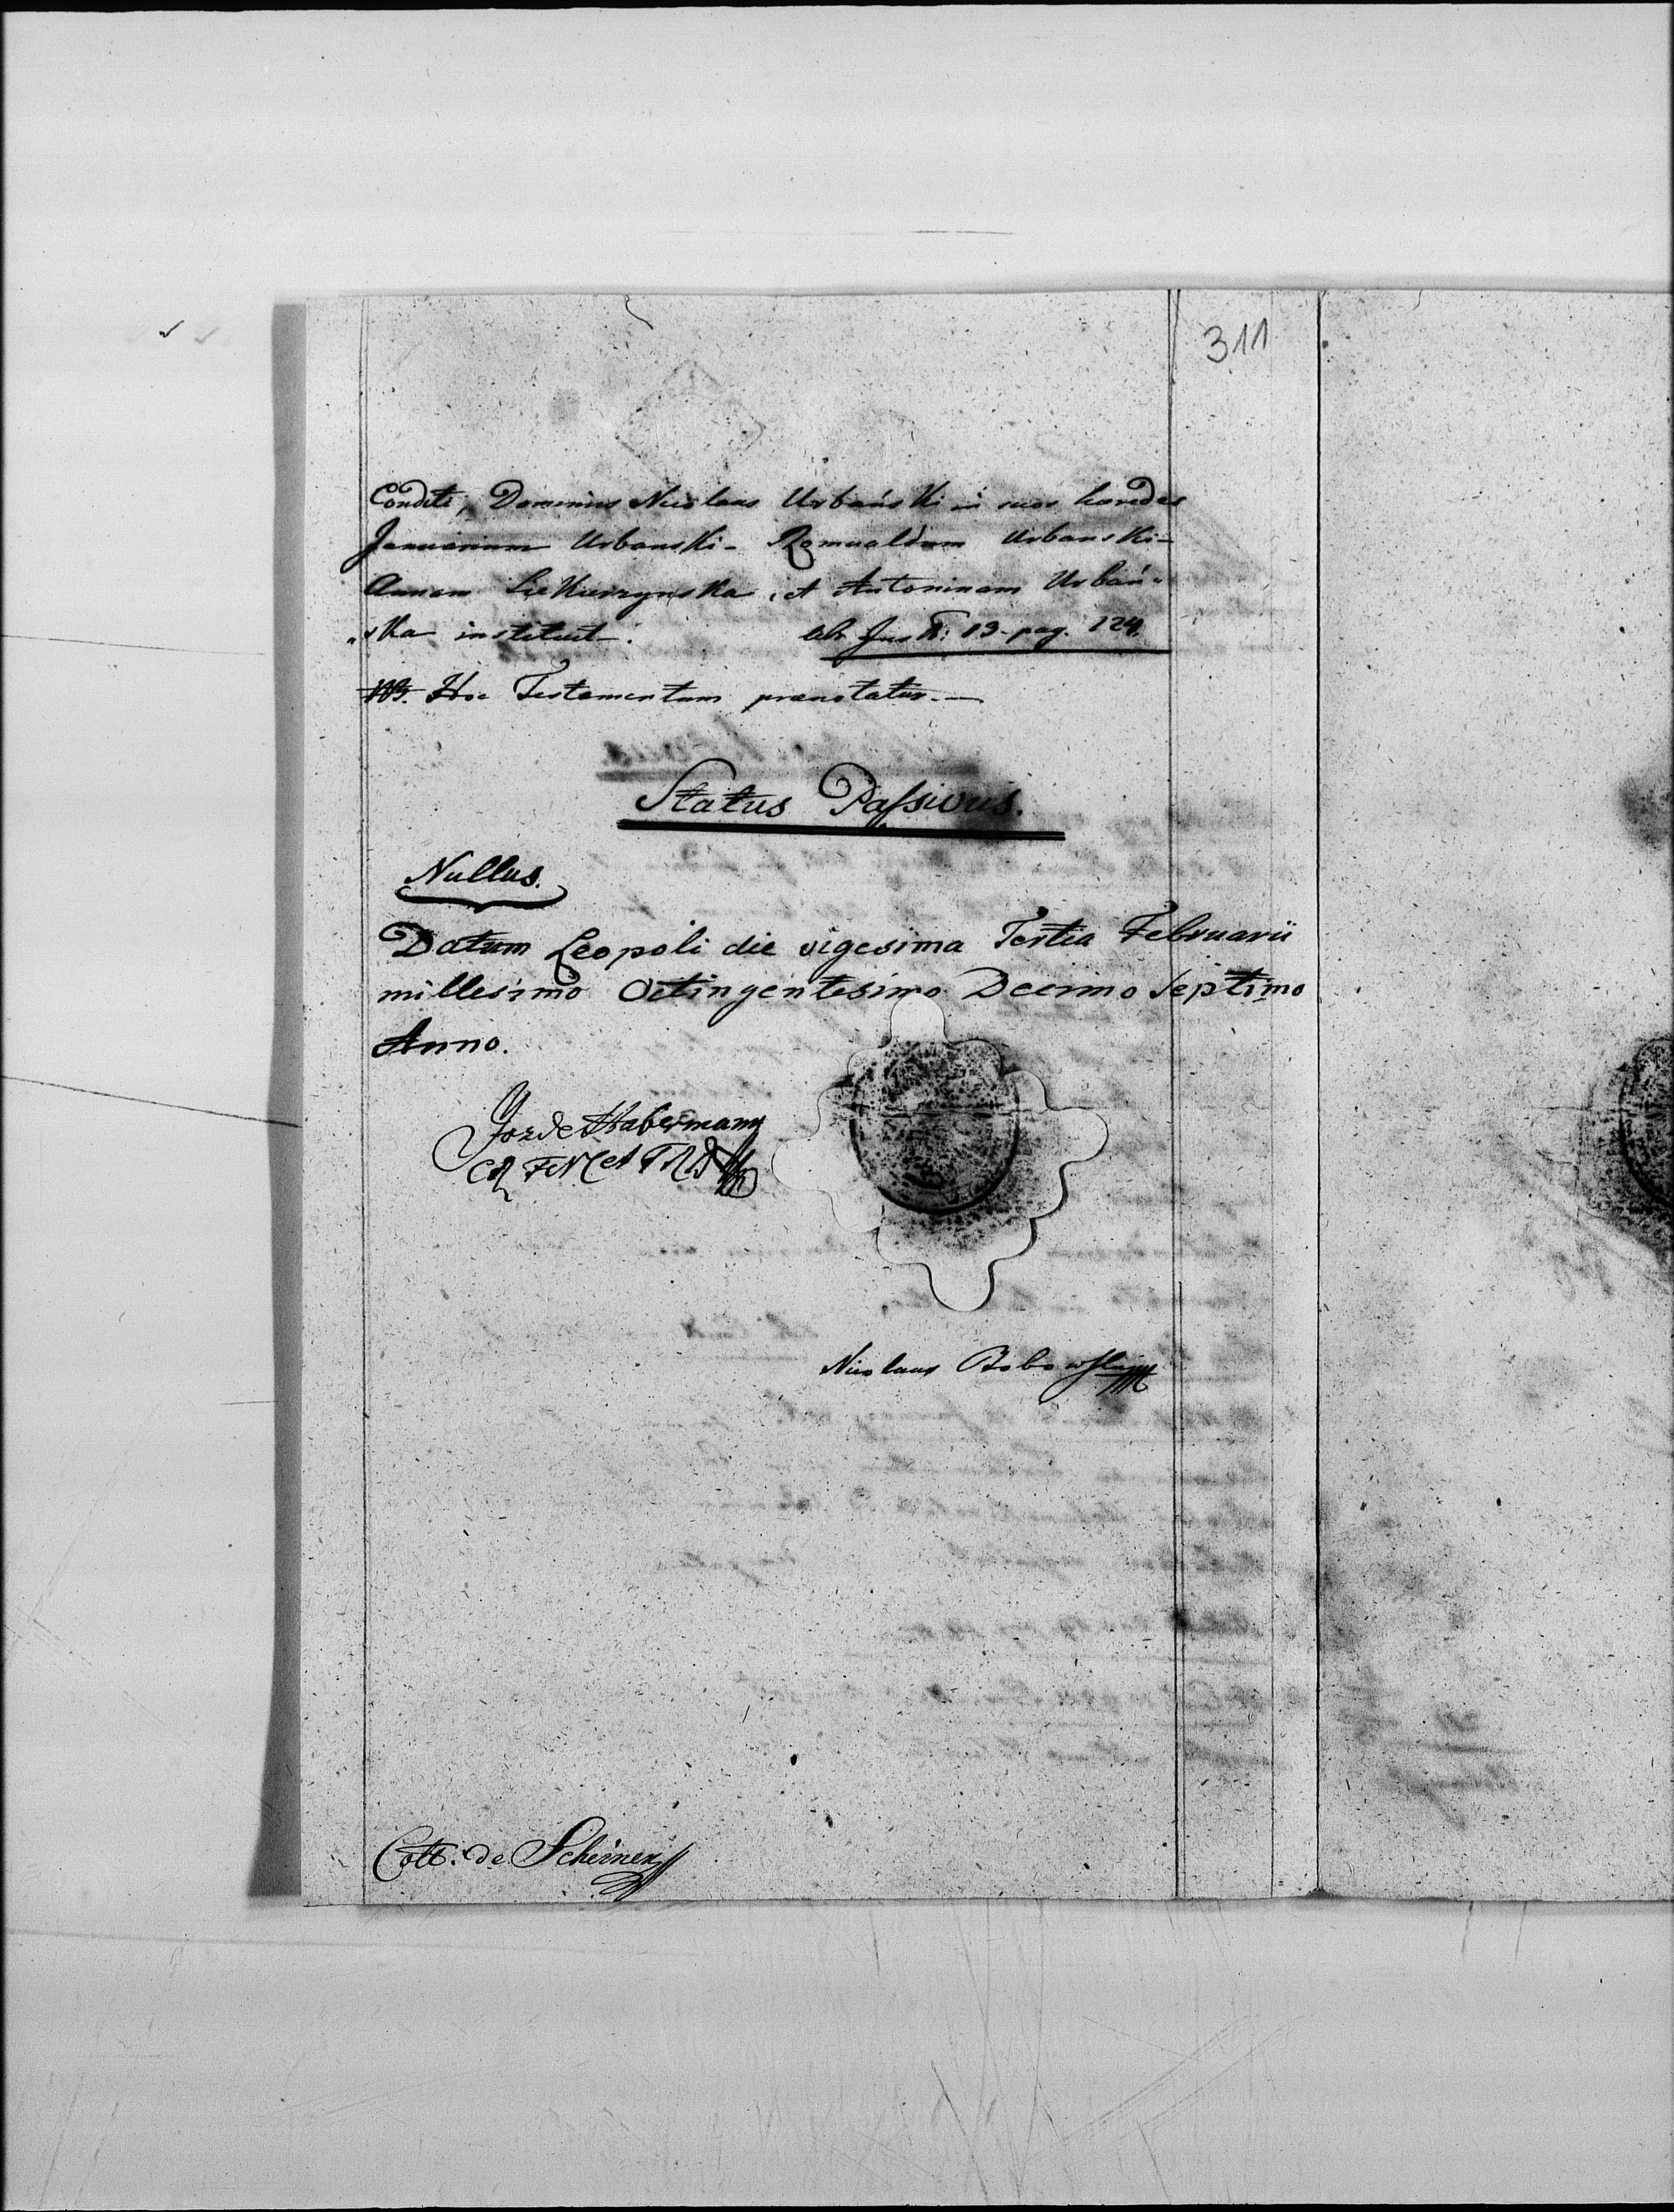 311
Conditi, Dominus Nicolaus Urbański in suos haeredes
Januarium Urbanski - Romualdum Urbanski -
Annam Siekierzynska, et Antoninam Urbań„
„ska instituit. lib. Inst: 13. pag. 124.
NB. Hoc Testamentum praenotatur. —
Status Passivus.
Nullus.
Datum Leopoli die vigesima Tertia Februarii
millesimo Octingentesimo Decimo Septimo
Anno.
Jos de Habermann
Nicolaus Bobowski
Coll: de Scheiner